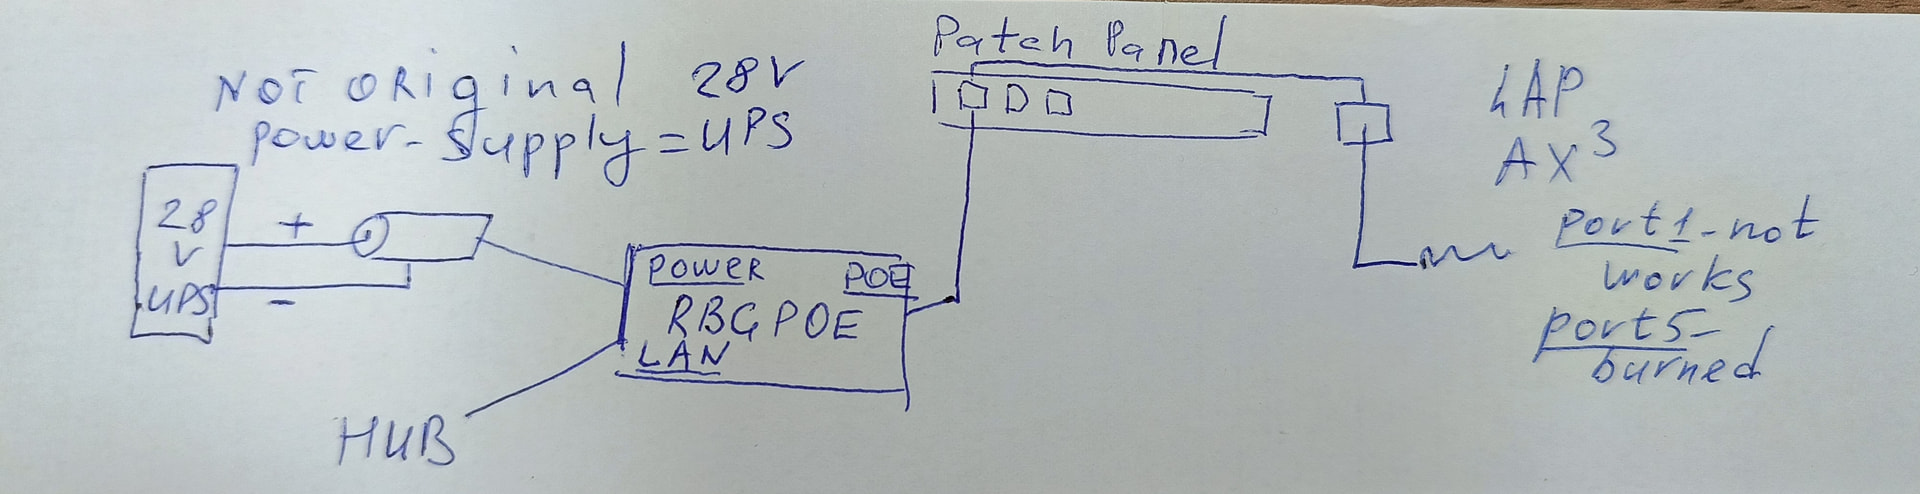 NOT ORiginal 28V
power-supply=UPS
28
V
UPS
+
-
POWER
POE
RBGPOE
LAN
HUB
Patch Panel
hAP
AX3
port1-not
works
port5-
burned